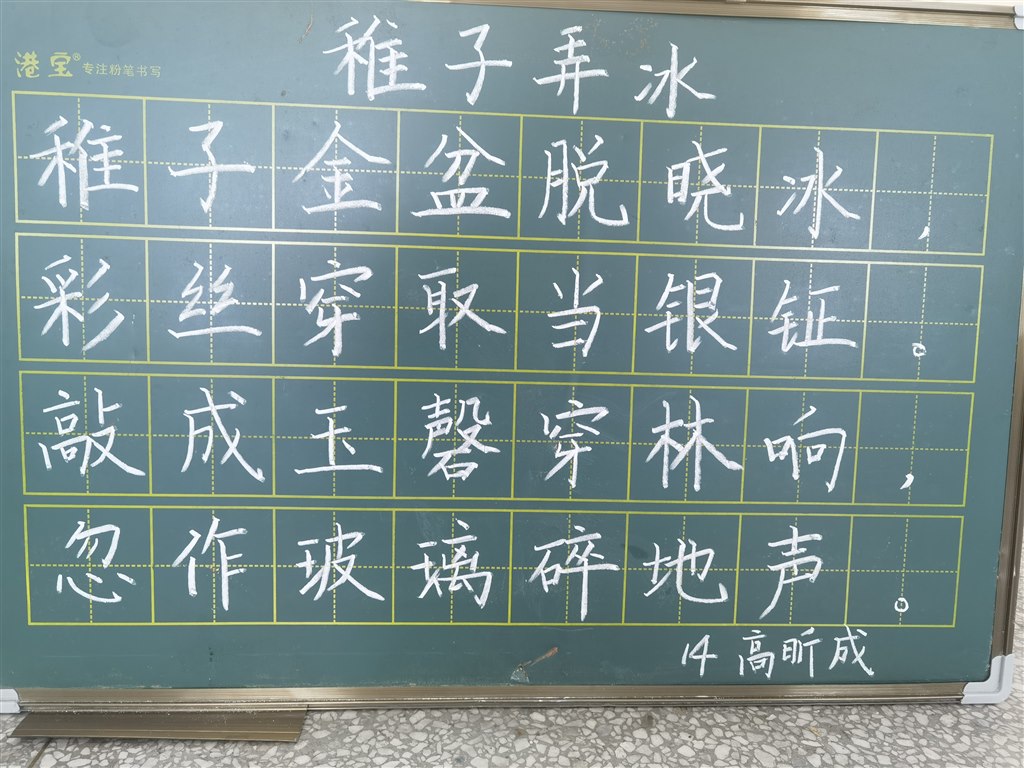 稚子弄冰
港宝® 专注粉笔书写
稚子金盆脱晓冰，
彩丝穿取当银钲。
敲成玉磬穿林响，
忽作玻璃碎地声。
14 高昕成